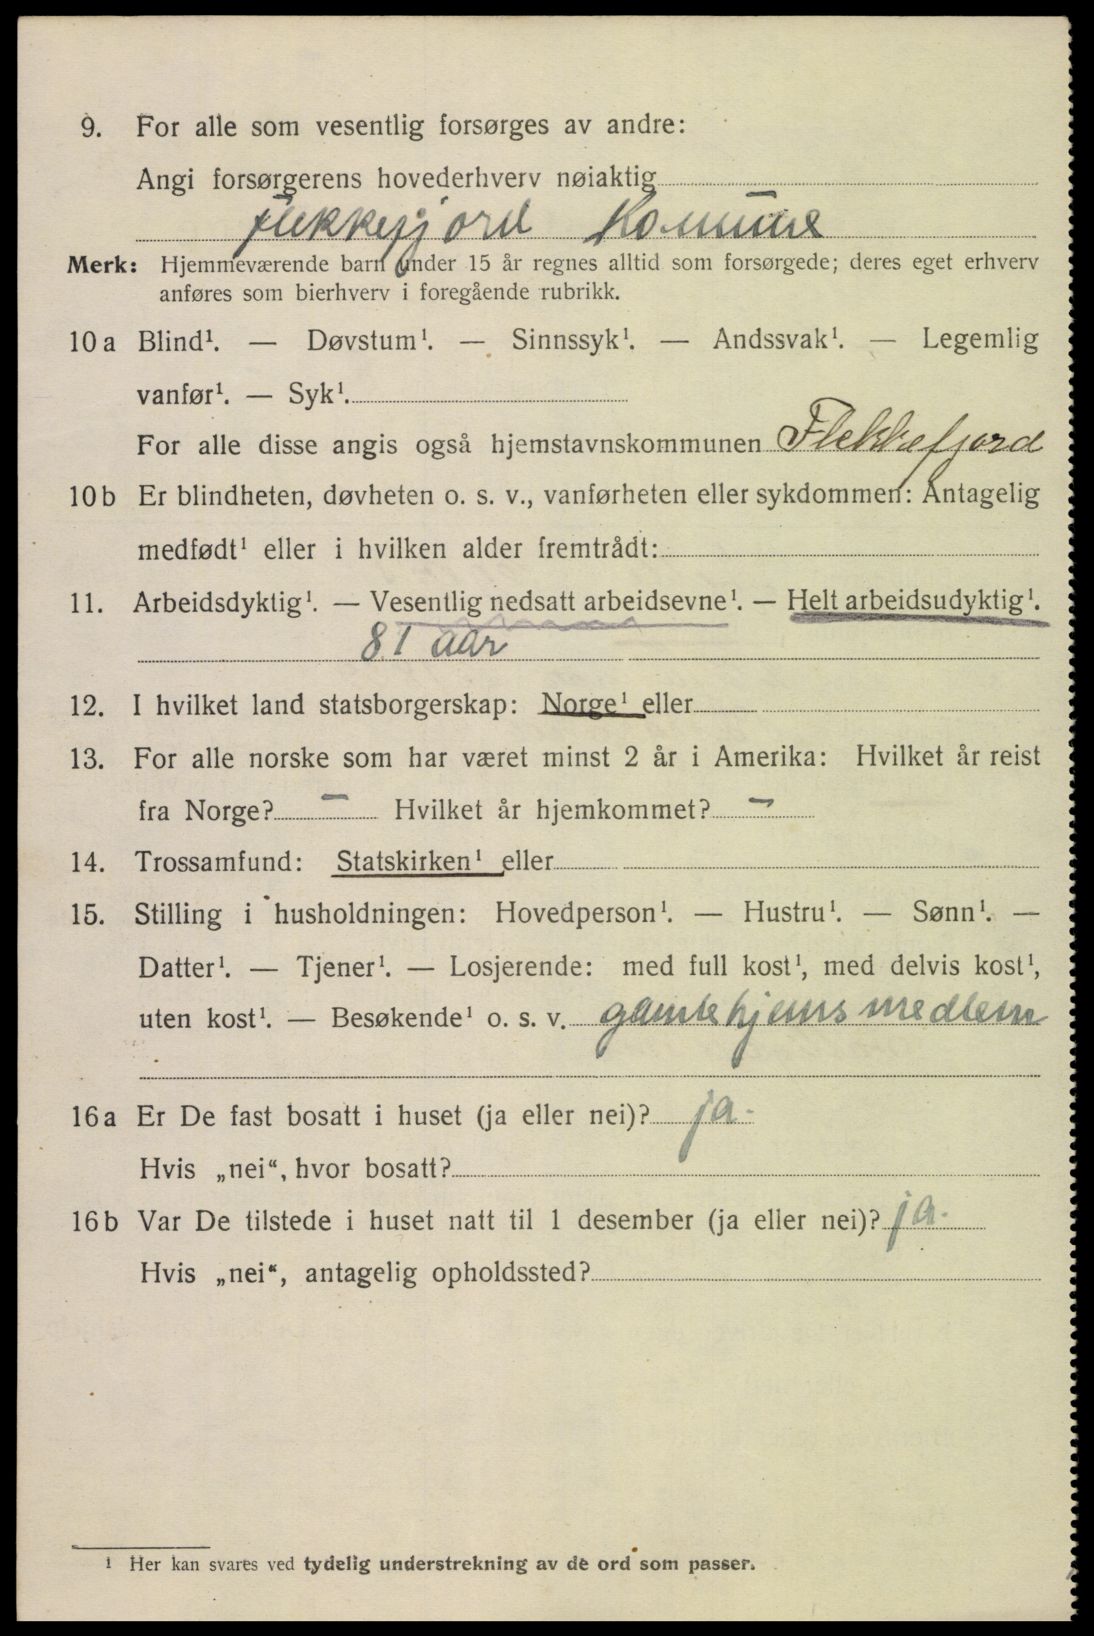 9. For alle som vesentlig forsørges av andre:
Angi forsørgerens hovederhverv nøiaktig
Flekkefjord Komune
Merk: Hjemmeværende barn under 15 år regnes alltid som forsørgede; deres eget erhverv
anføres som bierhverv i foregående rubrikk.
10 a Blind¹. — Døvstum¹. — Sinnssyk¹. — Andssvak¹. — Legemlig
vanfør¹. — Syk¹.
For alle disse angis også hjemstavnskommunen Flekkefjord
10 b Er blindheten, døvheten o. s. v., vanførheten eller sykdommen: Antagelig
medfødt¹ eller i hvilken alder fremtrådt:
11. Arbeidsdyktig¹. — Vesentlig nedsatt arbeidsevne¹. — Helt arbeidsudyktig¹.
81 aar
12. I hvilket land statsborgerskap: Norge¹ eller
13. For alle norske som har været minst 2 år i Amerika: Hvilket år reist
fra Norge? — Hvilket år hjemkommet? —
14. Trossamfund: Statskirken¹ eller
15. Stilling i husholdningen: Hovedperson¹. — Hustru¹. — Sønn¹. —
Datter¹. — Tjener¹. — Losjerende: med full kost¹, med delvis kost¹,
uten kost¹. — Besøkende¹ o. s. v. gamlehjems medlem
16 a Er De fast bosatt i huset (ja eller nei)? ja.
Hvis „nei“, hvor bosatt?
16 b Var De tilstede i huset natt til 1 desember (ja eller nei)? ja.
Hvis „nei“, antagelig opholdssted?
¹ Her kan svares ved tydelig understrekning av de ord som passer.